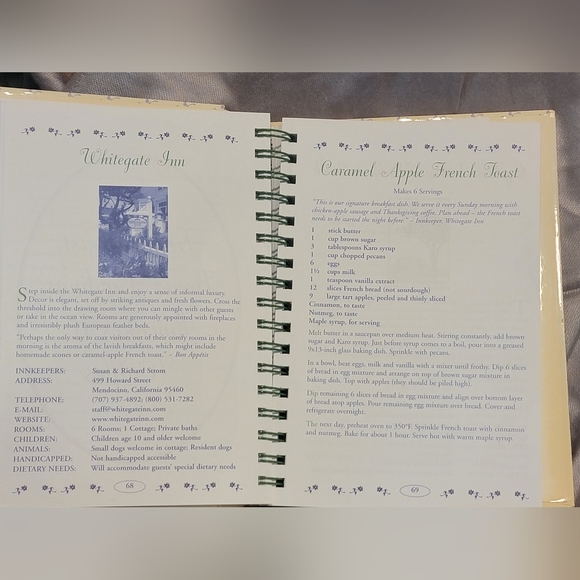 Whitegate Inn
Step inside the Whitegate Inn and enjoy a sense of informal luxury.
Decor is elegant, set off by striking antiques and fresh flowers. Cross the
threshold into the drawing room where you can mingle with other guests
or take in the ocean view. Rooms are generously appointed with fireplaces
and irresistibly plush European feather beds.
"Perhaps the only way to coax visitors out of their comfy rooms in the
morning is the aroma of the lavish breakfasts, which might include
homemade scones or caramel-apple French toast." ~ Bon Appétit
INNKEEPERS: Susan & Richard Strom
ADDRESS: 499 Howard Street
Mendocino, California 95460
TELEPHONE: (707) 937-4892; (800) 531-7282
E-MAIL: staff@whitegateinn.com
WEBSITE: www.whitegateinn.com
ROOMS: 6 Rooms; 1 Cottage; Private baths
CHILDREN: Children age 10 and older welcome
ANIMALS: Small dogs welcome in cottage; Resident dogs
HANDICAPPED: Not handicapped accessible
DIETARY NEEDS: Will accommodate guests' special dietary needs
68
Caramel Apple French Toast
Makes 6 Servings
"This is our signature breakfast dish. We serve it every Sunday morning with
chicken-apple sausage and Thanksgiving coffee. Plan ahead – the French toast
needs to be started the night before." ~ Innkeeper, Whitegate Inn
1 stick butter
1 cup brown sugar
3 tablespoons Karo syrup
1 cup chopped pecans
6 eggs
1½ cups milk
1 teaspoon vanilla extract
12 slices French bread (not sourdough)
9 large tart apples, peeled and thinly sliced
Cinnamon, to taste
Nutmeg, to taste
Maple syrup, for serving
Melt butter in a saucepan over medium heat. Stirring constantly, add brown
sugar and Karo syrup. Just before syrup comes to a boil, pour into a greased
9x13-inch glass baking dish. Sprinkle with pecans.
In a bowl, beat eggs, milk and vanilla with a mixer until frothy. Dip 6 slices
of bread in egg mixture and arrange on top of brown sugar mixture in
baking dish. Top with apples (they should be piled high).
Dip remaining 6 slices of bread in egg mixture and align over bottom layer
of bread atop apples. Pour remaining egg mixture over bread. Cover and
refrigerate overnight.
The next day, preheat oven to 350°F. Sprinkle French toast with cinnamon
and nutmeg. Bake for about 1 hour. Serve hot with warm maple syrup.
69